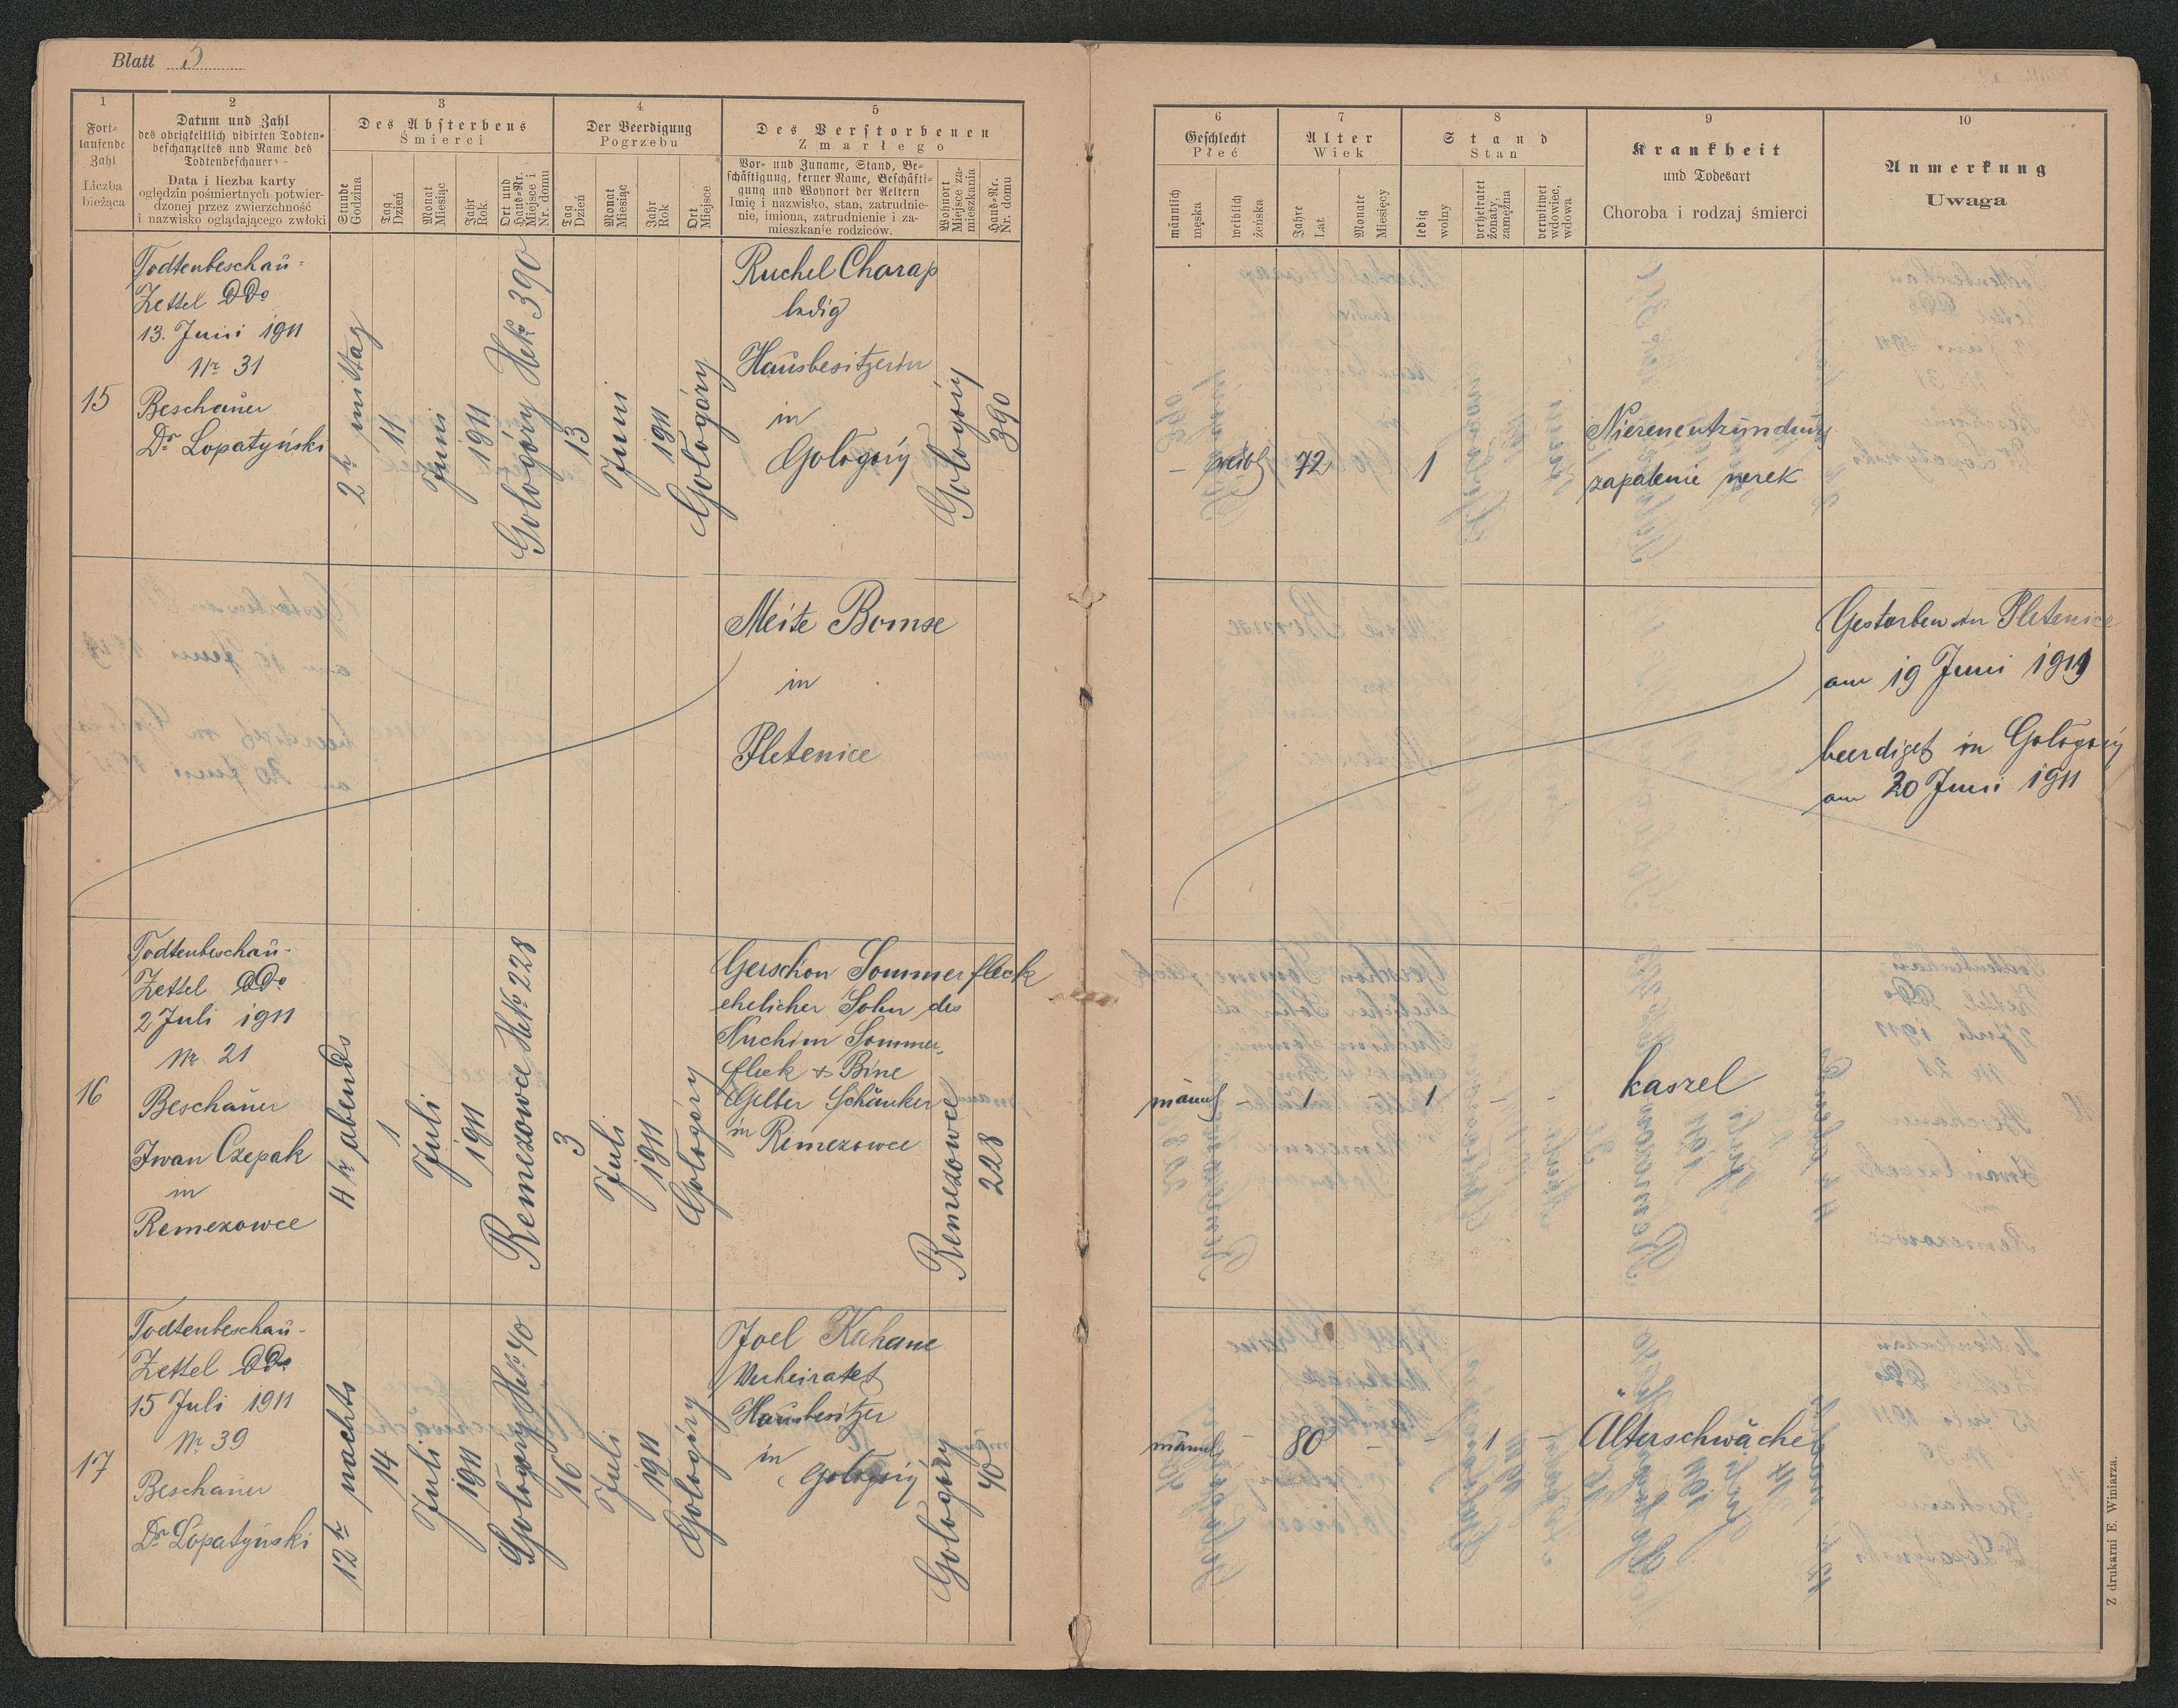 Blatt 3
1
Fort-
laufende
Zahl
Liczba
bieżąca
2
Datum und Zahl
des obrigkeitlich vidirten Todten-
beschauzettels und Name des
Todtenbeschauers
Data i liczba karty
oględzin pośmiertnych potwier-
dzonej przez zwierzchność
i nazwisko oglądającego zwłoki
3
Des Absterbens
Śmierci
Stunde
Godzina
Tag
Dzień
Monat
Miesiąc
Jahr
Rok
Ort und
Haus-Nr.
Miejsce i
Nr. domu
4
Der Beerdigung
Pogrzebu
Tag
Dzień
Monat
Miesiąc
Jahr
Rok
Ort
Miejsce
5
Des Verstorbenen
Zmarłego
Vor- und Zuname, Stand, Be-
schäftigung, ferner Name, Beschäfti-
gung und Wohnort der Aeltern
Imię i nazwisko, stan, zatrudnie-
nie, imiona, zatrudnienie i za-
mieszkanie rodziców.
Wohnort
Miejsce za-
mieszkania
Haus-Nr.
Nr. domu
6
Geschlecht
Płeć
männlich
męska
weiblich
żeńska
7
Alter
Wiek
Jahre
Lat
Monate
Miesięcy
8
Stand
Stan
ledig
wolny
verheiratet
żonaty,
zamężna
verwitwet
wdowiec,
wdowa
9
Krankheit
und Todesart
Choroba i rodzaj śmierci
10
Anmerkung
Uwaga
15
Todtenbeschau-
Zettel DDo
13. Juni 1911
Nr 31
Beschauer
Dr Lopatyński
2 h mittag
11
Juni
1911
Gołogóry HNo 390
13
Juni
1911
Gołogóry
Ruchel Charap
ledig
Hausbesitzerin
in
Gołogóry
Gołogóry
390
–
weibl
72
1
Nierenentzündung
zapalenie nerek
Meite Bomse
in
Pletenice
Gestorben in Pletenice
am 19 Juni 1911
beerdiget in Gołogóry
am 20 Juni 1911
16
Todtenbeschau-
Zettel DDo
2 Juli 1911
Nr 21
Beschauer
Iwan Czepak
in
Remezowce
4 h abends
1
Juli
1911
Remezowce HNo 228
3
Juli
1911
Gołogóry
Gerschon Sommerfleck
ehelicher Sohn des
Nuchim Sommer-
fleck & Bine
Gelber Schänker
in Remezowce
Remezowce
228
männl
–
1
–
1
–
-
kaszel
17
Todtenbeschau-
Zettel DDo
15 Juli 1911
Nr 39
Beschauer
Dr Lopatyński
12 h nachts
14
Juli
1911
Gołogóry HNo 40
16
Juli
1911
Gołogóry
Joel Kahane
Verheiratet
Hausbesitzer
in
Gołogóry
Gołogóry
40
männl
-
80
-
-
1
-
Alterschwäche
Z drukarni E. Winiarza.